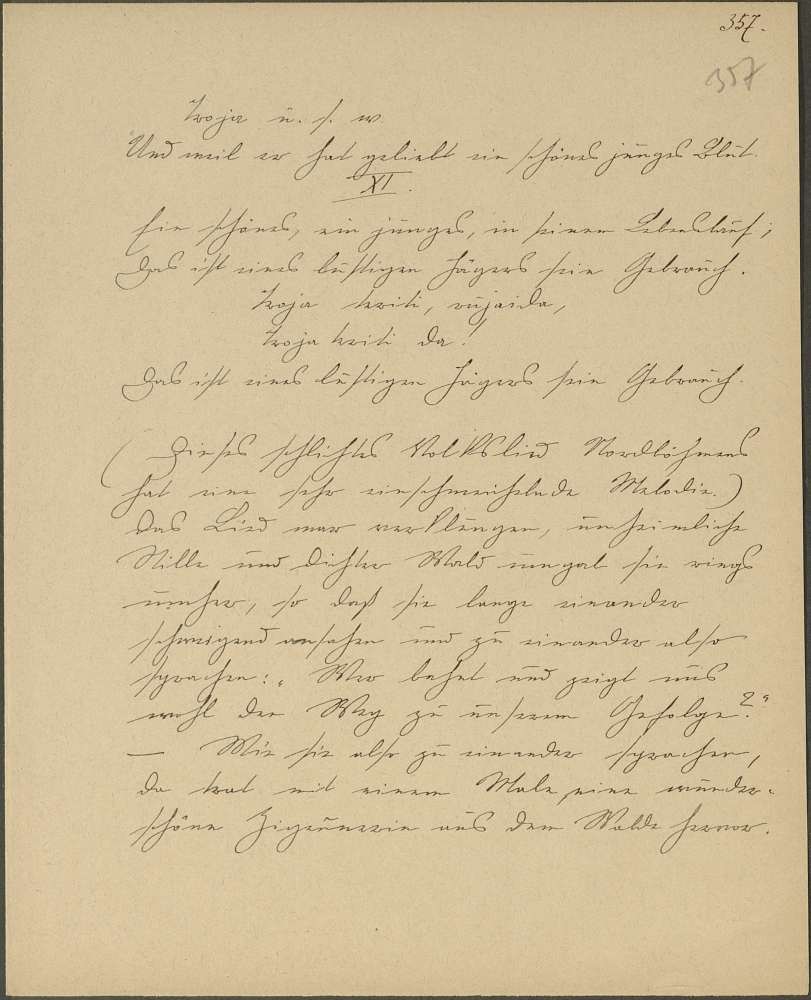 357.
357
Troja u. s. w.
Und weil er hat geliebt ein schönes junges Blut.
XI.
Ein schönes, ein junges, in seinem Lebenslauf;
Das ist eines lustigen Jägers sein Gebrauch.
Troja triti, rujaida,
Troja triti da!
Das ist eines lustigen Jägers sein Gebrauch.
(Dieses schlichtes Volkslied Nordböhmens
hat eine sehr einschmeichelnde Melodie.)
Das Lied war verklungen, unheimliche
Stille und dichter Wald umgab sie rings
umher, so daß sie lange einander
schweigend ansahen und zu einander also
sprachen: „Wer und zeigt uns
wohl den Weg zu unserem Gefolge?“
— Wie sie also zu einander sprachen,
da trat mit einem Male eine wunder-
schöne Zigeunerin aus dem Walde hervor.